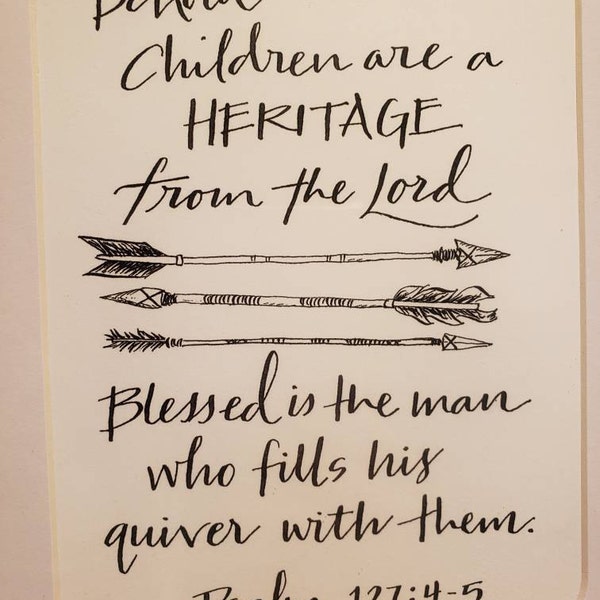 Behold
Children are a
HERITAGE
from the Lord
Blessed is the man
who fills his
quiver with them.
Psalm 127:4-5